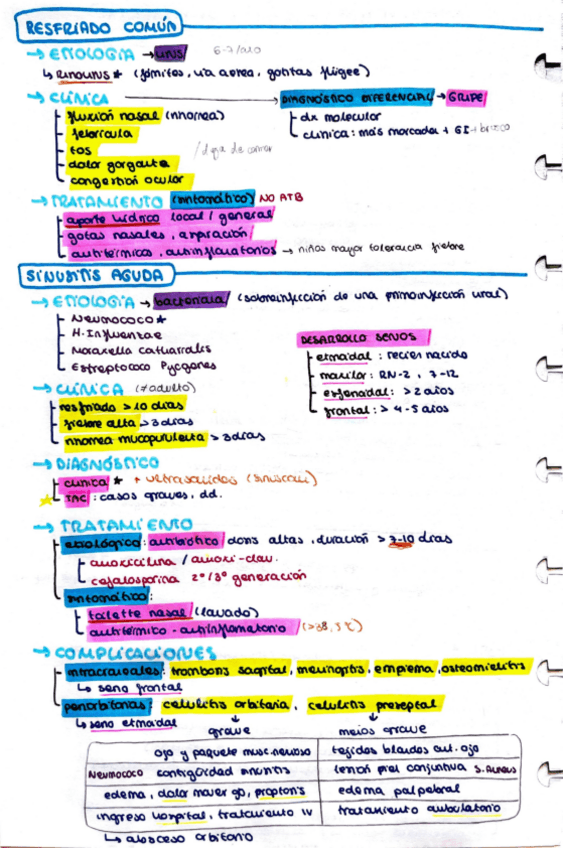 RESFRIADO COMÚN
→ ETIOLOGIA → VIRUS 6-7/año
↳ RINOVIRUS * (fómites, vía aerea, gotitas flügge)
→ CLÍNICA → DIAGNÓSTICO DIFERENCIAL → GRIPE
fluxión nasal (rinorrea) - dx molecular
febrícula - clínica: más marcada + GI + brusco
tos
dolor garganta / deja de comer
congestión ocular
→ TRATAMIENTO (sintomático) NO ATB
aporte hídrico local / general
gotas nasales, aspiración
antitérmicos, antiinflamatorios → niños mayor tolerancia fiebre
SINUSITIS AGUDA
→ ETIOLOGIA → bacteriana (sobreinfección de una primoinfección viral)
Neumococo *
H. Influenzae
Moraxella Catharralis
Estreptococo Pyogenes
DESARROLLO SENOS
etmoidal: recien nacido
maxilar: RN-2, 7-12
esfenoidal: > 2 años
frontal: > 4-5 años
→ CLÍNICA (≠ adulto)
resfriado > 10 días
fiebre alta > 3 días
rinorrea mucopurulenta > 3 días
→ DIAGNÓSTICO
clínica * + ultrasonidos (sinuscan)
TAC: casos graves, dd.
→ TRATAMIENTO
etiológico: antibiótico dosis altas, duración > 7-10 días
amoxicilina / amoxi-clav.
cefalosporina 2º/3º generación
sintomático:
toilette nasal (lavado)
antitérmico - antiinflamatorio (>38,5ºC)
→ COMPLICACIONES
intracraneales: trombosis sagital, meningitis, empiema, osteomielitis
↳ seno frontal
periorbitarias: celulitis orbitaria, celulitis preseptal
↳ seno etmoidal
grave menos grave
ojo y paquete musc. nervioso tejidos blandos ant. ojo
NEUMOCOCO contigüidad sinusitis lesión piel conjuntiva S. Aureus
edema, dolor mover ojo, proptosis edema palpebral
ingreso hospital, tratamiento IV tratamiento ambulatorio
↳ absceso orbitario